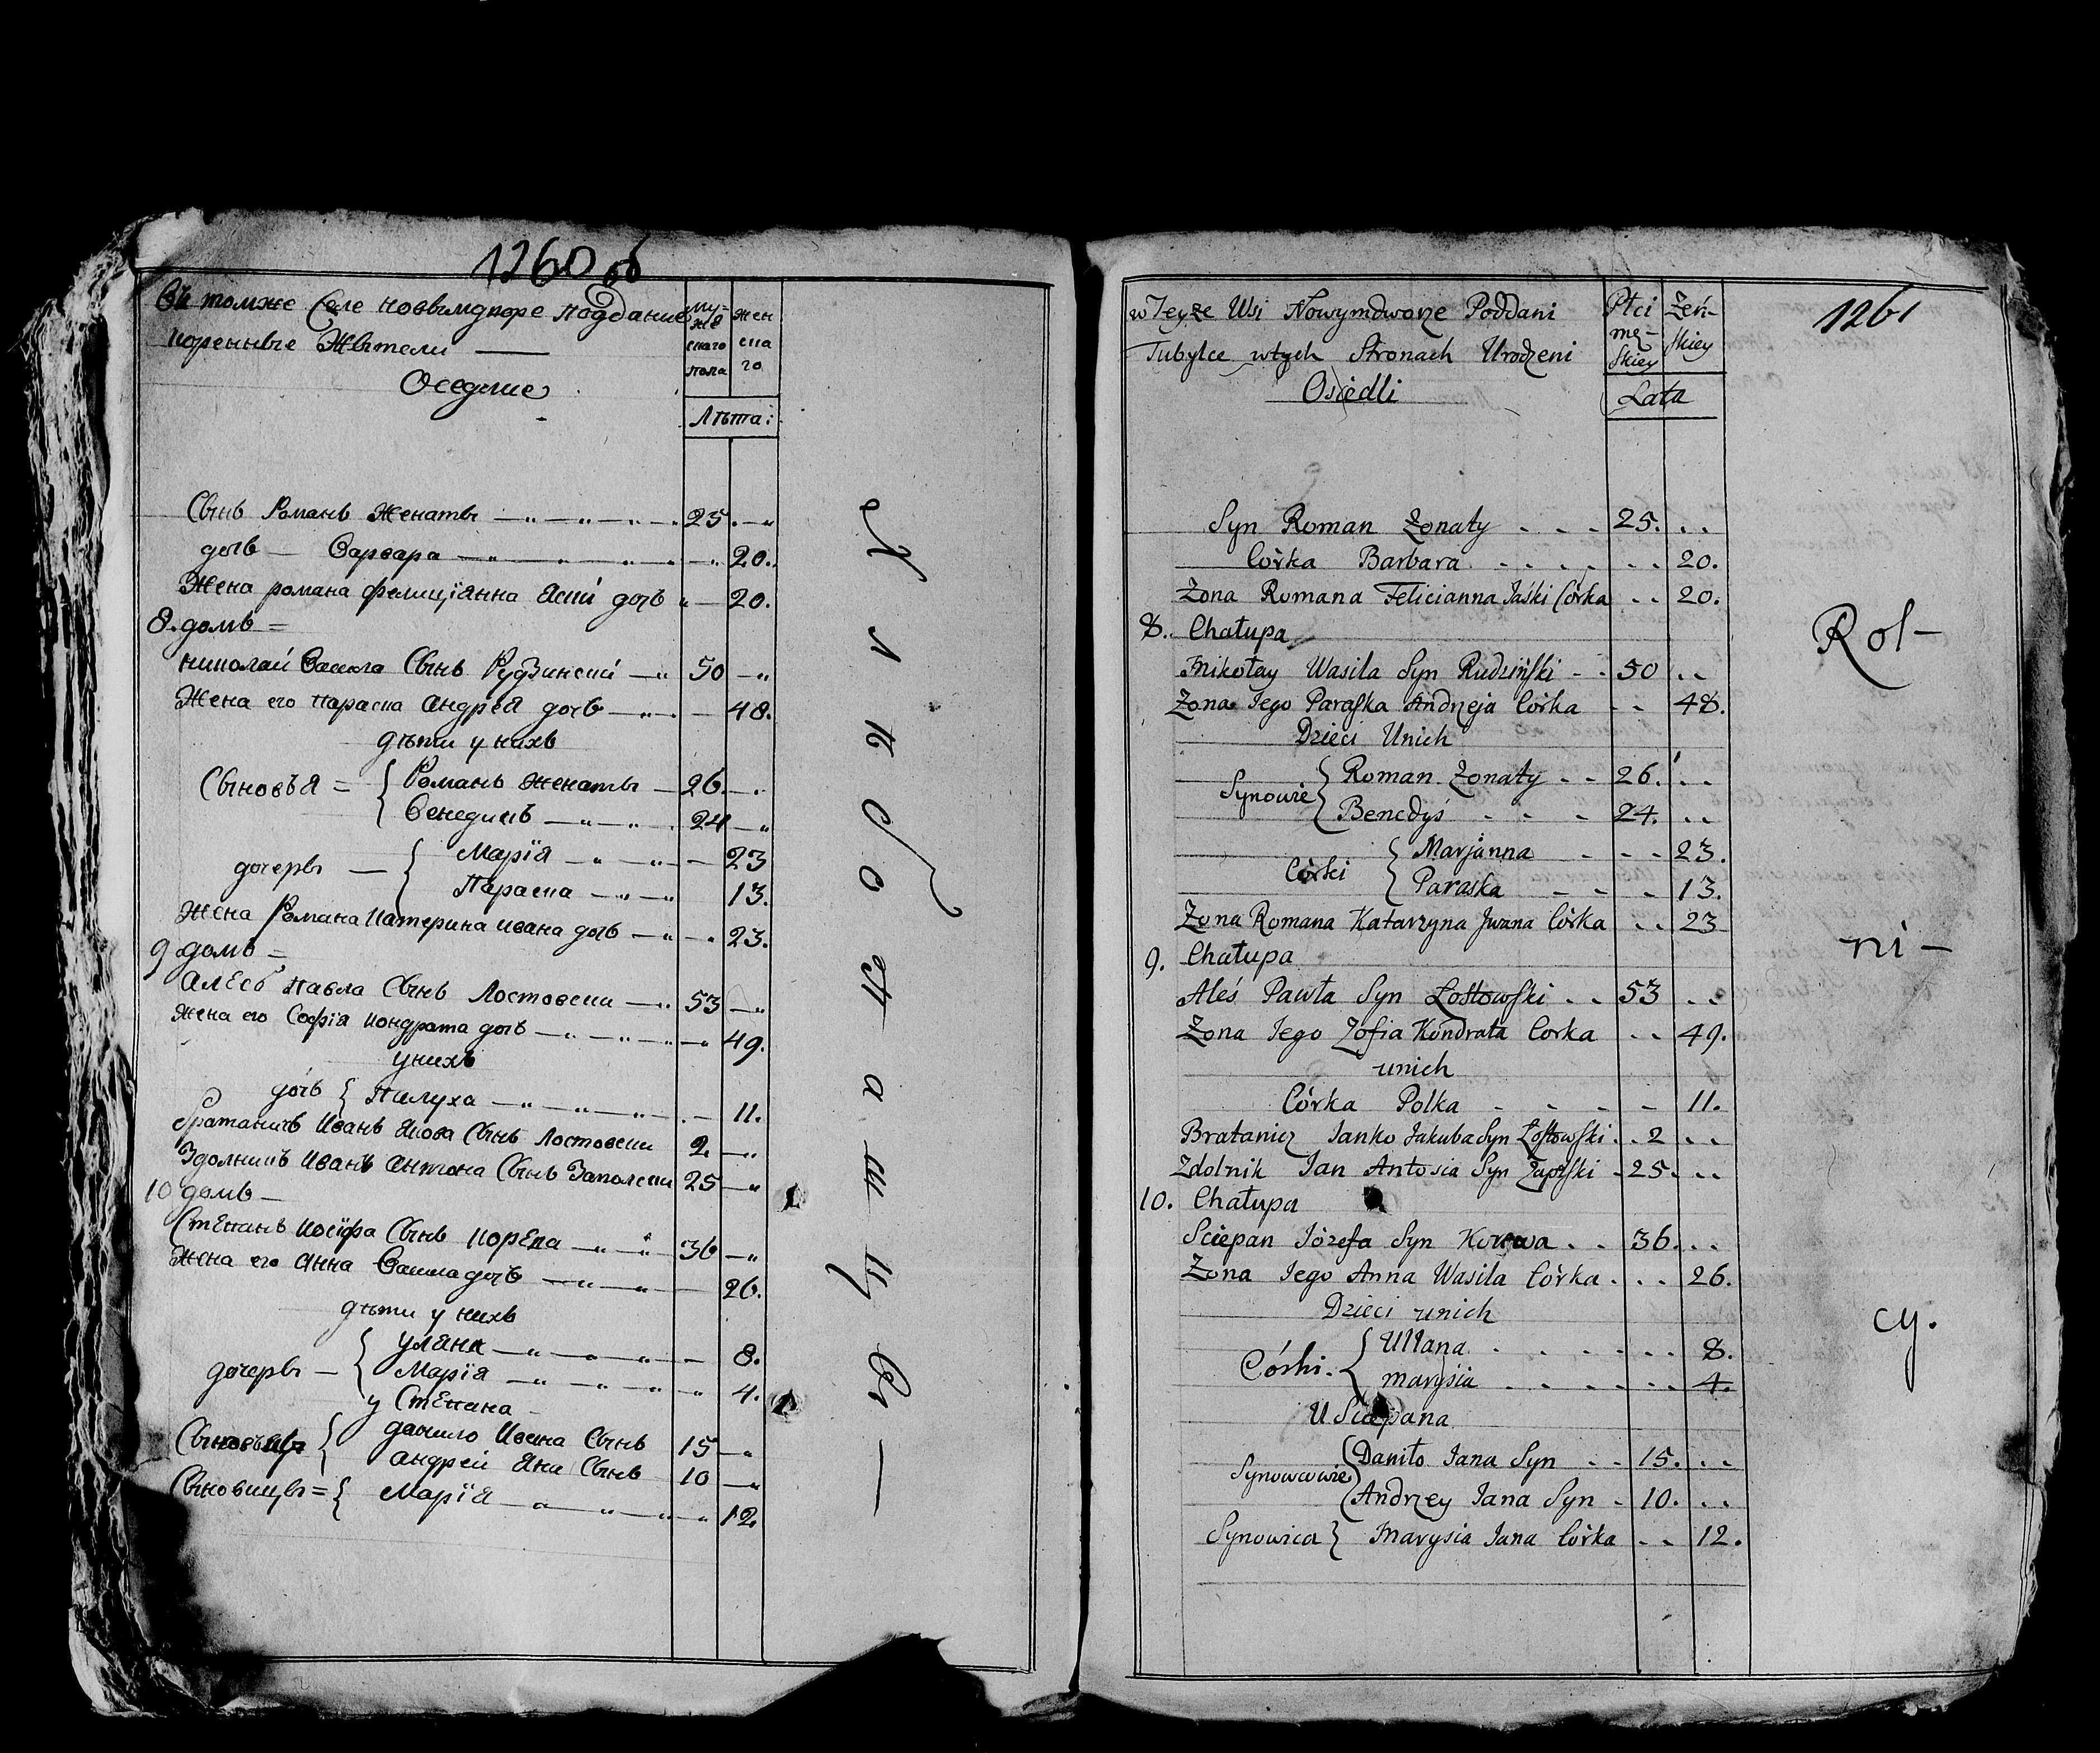 1260 об
Въ томже Селе новвымдворе Подданые
коренные Жытели —
Оседлые
му-
же
скаго
пола
жен
ска
го
Лѣта:
Сынъ Романъ Женаты 25.
дочь — Варвара 20.
Жена романа фелиціянна Яски дочь 20.
8. домъ =
николай Василя Сынъ Рудзински 50
Жена его параска андрея дочь 48.
дѣти у нихъ
Сыновья = { Романъ женаты 26.
Бенедикъ 24
дочеры — { Марія 23
Параска 13.
Жена Романа Катерина ивана дочь 23.
9 домъ =
алесь павла Сынъ Лостовски 53
жена его Софія кондрата дочь 49.
унихъ
дочь { Палуха 11.
братаничъ иванъ якова Сынъ Лостовски 2.
Здолникъ иванъ антона Сынъ Заполски 25
10 домъ —
Степанъ иосифа Сынъ корева 36
жена его анна Василя дочь 26.
дѣти у нихъ
дочеры — { уляна 8.
Марія 4.
у Степана
Сыновцы { данило ивана Сынъ 15
андрей яна Сынъ 10
Сыновицы = { Марія 12
Хлѣбопашцы —
1261
w Teyże Wsi Nowymdworze Poddani
Tubylce wtych Stronach Urodzeni
Osiedli
Płci
mę-
skiey
Żeń-
skiey
Lata
Syn Roman Żonaty . . . 25. . .
Córka Barbara . . . . . . . 20.
Żona Romana Felicianna Jaśki Córka . . 20.
8. Chałupa
Mikołay Wasila Syn Rudziński - . 50 . .
Żona Jego Paraska Andrzeja Córka - - 48.
Dzieci Unich
Synowie { Roman Żonaty . . 26. . .
Benedyś - - - 24. . .
Córki { Marjanna - - - 23.
Paraska - - - 13.
Żona Romana Katarzyna Jwana Córka . . 23
9. Chałupa
Aleś Pawła Syn Łostowski . . 53 . .
Żona Jego Zofia Kondrata Corka . . 49.
unich
Córka Polka - - - - 11.
Bratanicz Janko Jakuba Syn Łostowski . . 2 . .
Zdolnik Jan Antosia Syn Zapolski - 25. . .
10. Chałupa
Sciepan Józefa Syn Korewa . . 36. . .
Żona Jego Anna Wasila Córka . . . 26.
Dzieci unich
Córki. { Ullana . . . . . . . 8.
Marysia . . . . . . . 4.
U Sciepana
Synowcowie { Daniło Jana Syn . . 15. . .
Andrzey Jana Syn . 10. . .
Synowica } Marysia Jana Córka . . 12.
Rol-
ni-
cy.